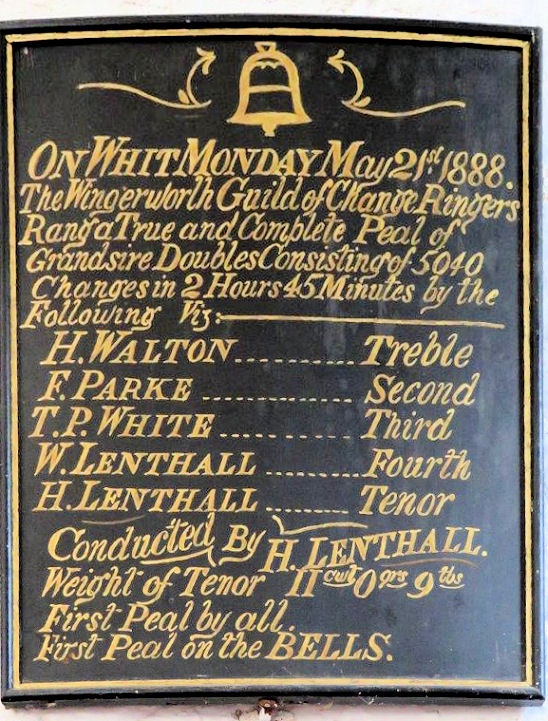 ON WHIT MONDAY May 21st 1888.
The Wingerworth Guild of Change Ringers
Rang a True and Complete Peal of
Grandsire Doubles Consisting of 5040
Changes in 2 Hours 45 Minutes by the
Following Viz:
H. WALTON .......... Treble
F. PARKE ............. Second
T.P. WHITE ........... Third
W. LENTHALL ......... Fourth
H. LENTHALL ........ Tenor
Conducted By H. LENTHALL.
Weight of Tenor 11 cwt 0 qrs 9 lbs
First Peal by all.
First Peal on the BELLS.